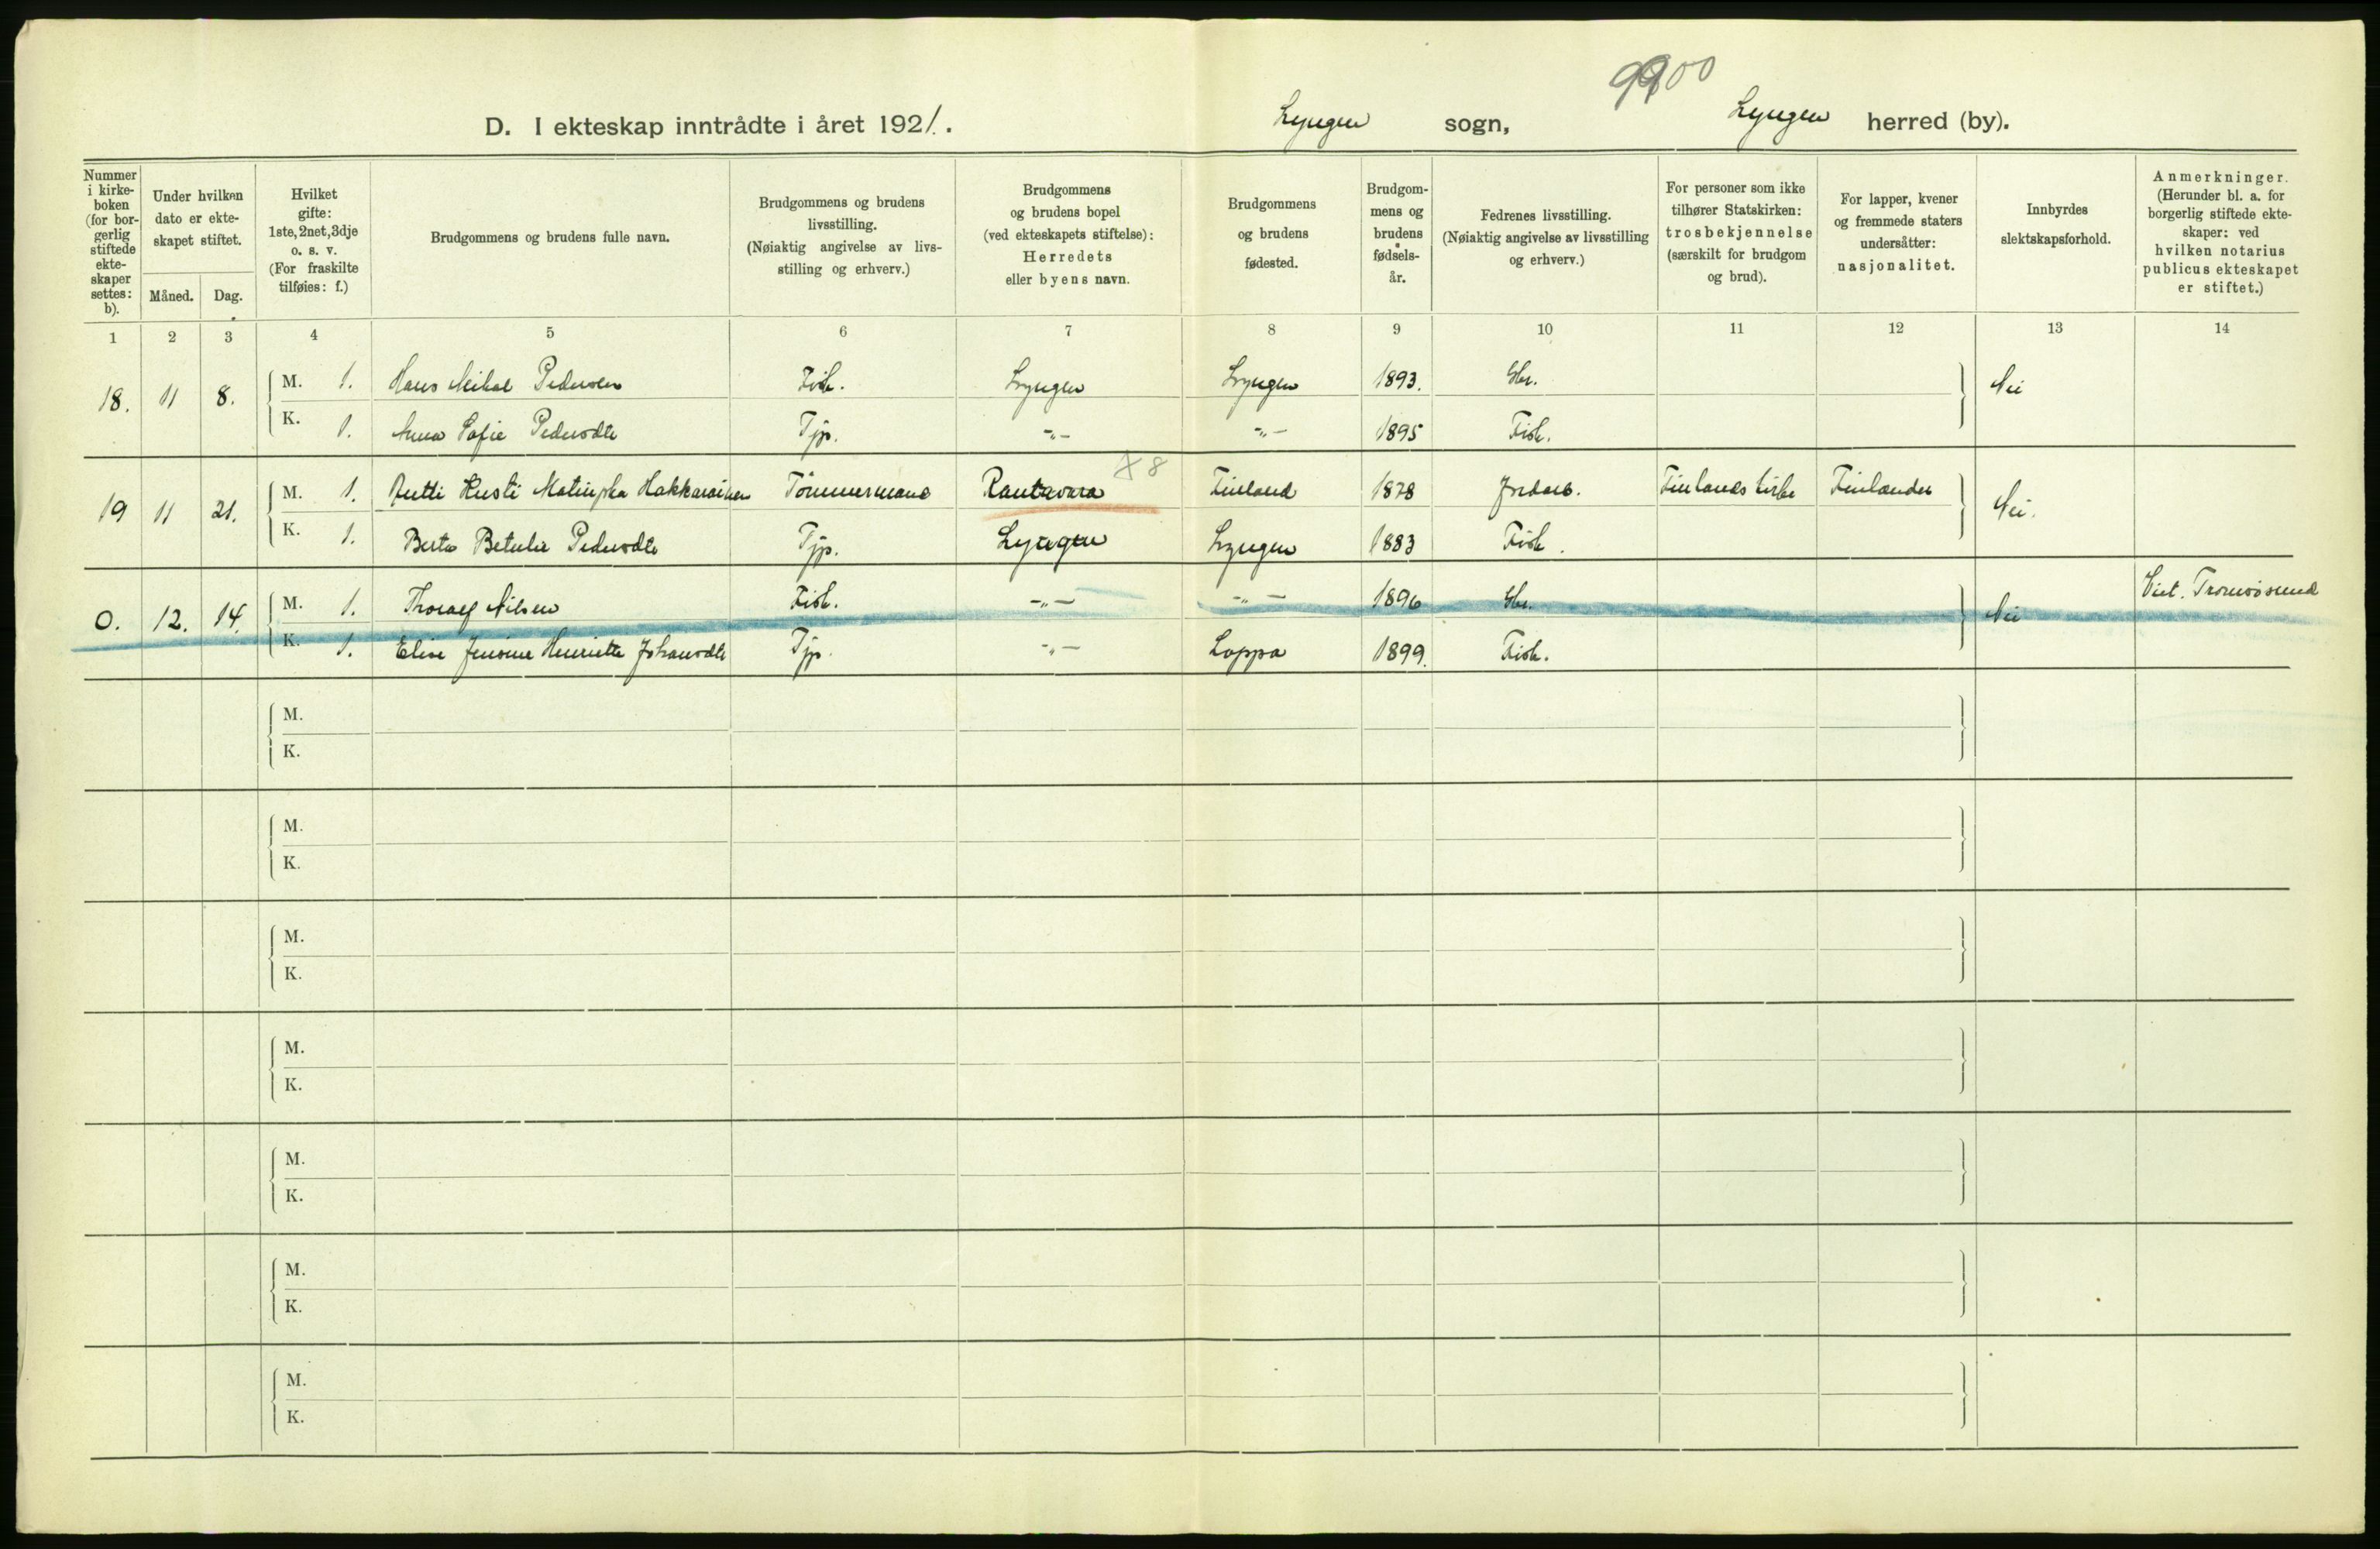 9900
D. I ekteskap inntrådte i året 1921. Lyngen sogn, Lyngen herred (by).
Nummer i kirke-boken (for bor-gerlig stiftede ekte-skaper settes: b).
Under hvilken dato er ekte-skapet stiftet.
Måned. Dag.
Hvilket gifte: 1ste, 2net, 3dje o. s. v. (For fraskilte tilføies: f.)
Brudgommens og brudens fulle navn.
Brudgommens og brudens livsstilling. (Nøiaktig angivelse av livs-stilling og erhverv.)
Brudgommens og brudens bopel (ved ekteskapets stiftelse): Herredets eller byens navn.
Brudgommens og brudens fødested.
Brudgom-mens og brudens fødsels-år.
Fedrenes livsstilling. (Nøiaktig angivelse av livsstilling og erhverv.)
For personer som ikke tilhører Statskirken: trosbekjennelse (særskilt for brudgom og brud).
For lapper, kvener og fremmede staters undersåtter: nasjonalitet.
Innbyrdes slektskapsforhold.
Anmerkninger. (Herunder bl. a. for borgerlig stiftede ekte-skaper: ved hvilken notarius publicus ekteskapet er stiftet.)
1 2 3 4 5 6 7 8 9 10 11 12 13 14
18. 11 8. M. 1. Hans Mikal Pedersen Fisk. Lyngen Lyngen 1893. Gbr. Nei
K. 1. Anna Sofie Pedersdtr Tjp. -"- -"- 1895 Fisk.
x 8
19 11 21. M. 1. Antti Kusti Matinpka Hakkarainen Tömmermand Rautavara Finland 1878 Jordarb. Finlands kirke Finlænder Nei.
K. 1. Berta Betulie Pedersdtr Tjp. Lyngen Lyngen 1883 Fisk.
0. 12. 14. M. 1. Thoralf Nilsen Fisk. -"- -"- 1896 Gbr. Nei Viet. Tromsøsund
K. 1. Elise Jensine Henriette Johansdtr Tjp. -"- Loppa 1899. Fisk.
M.
K.
M.
K.
M.
K.
M.
K.
M.
K.
M.
K.
M.
K.